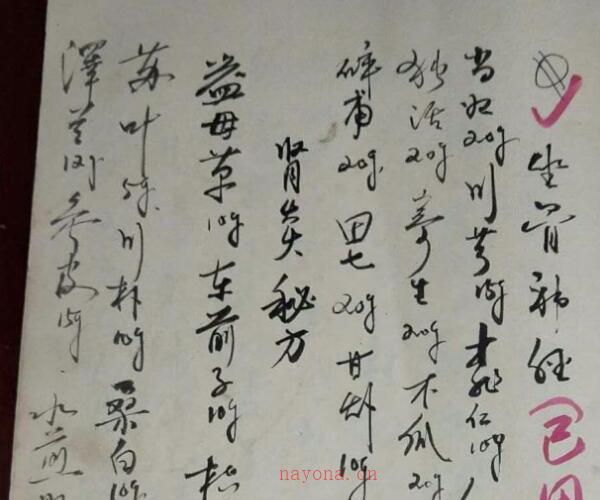 坐骨神经 已用
当归20g 川芎15g 桃仁10g
独活20g 寄生20g 木瓜20g
碎甫20g 田七20g 甘草10g
肾炎秘方
益母草15g 车前子10g
苏叶5g 川朴10g 桑白10g
泽兰 冬皮15g 水煎
nayona.cn